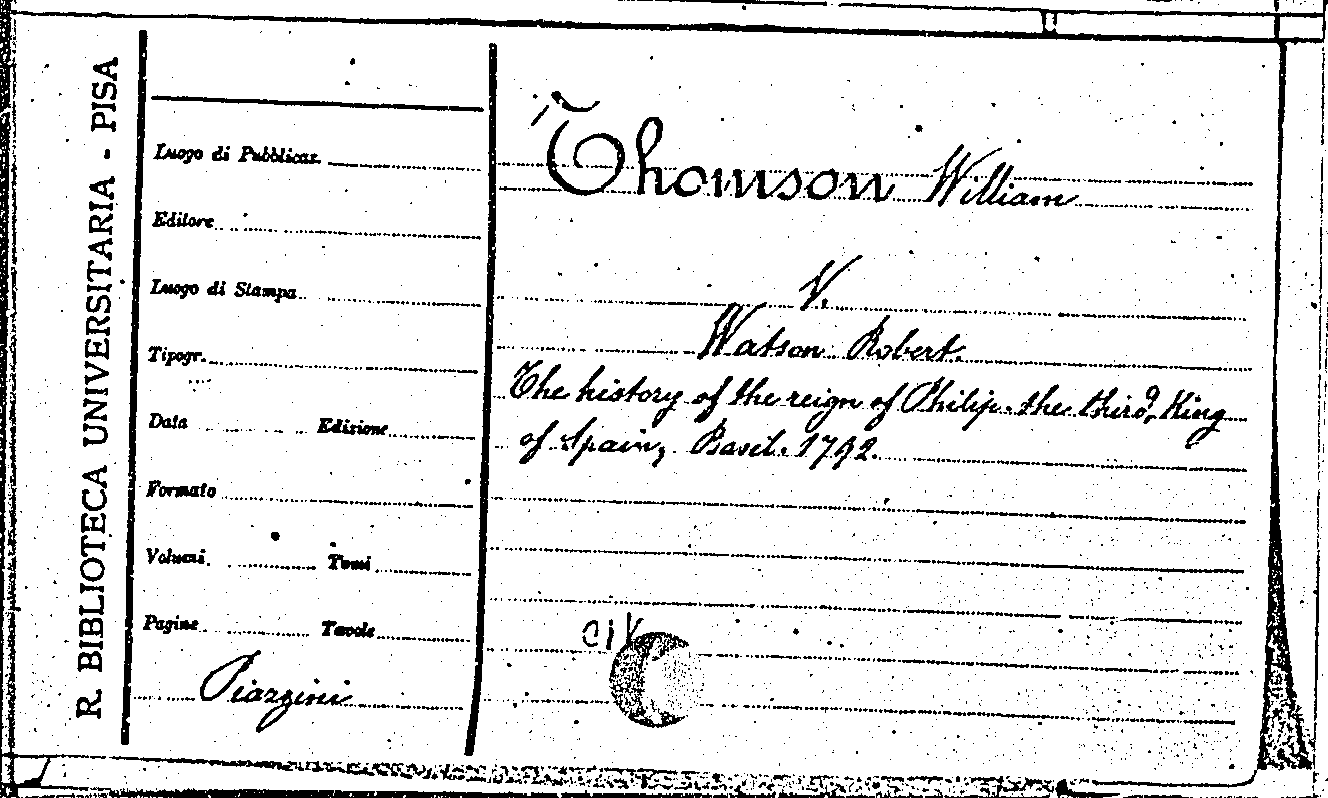 R. BIBLIOTECA UNIVERSITARIA - PISA
Luogo di Pubblicaz.
Editore
Luogo di Stampa
Tipogr.
Data Edizione
Formato
Volumi Tomi
Pagine Tavole
Piazzini
Thomson William
V.
Watson Robert.
The history of the reign of Philip the third, King
of Spain, Basil. 1792.